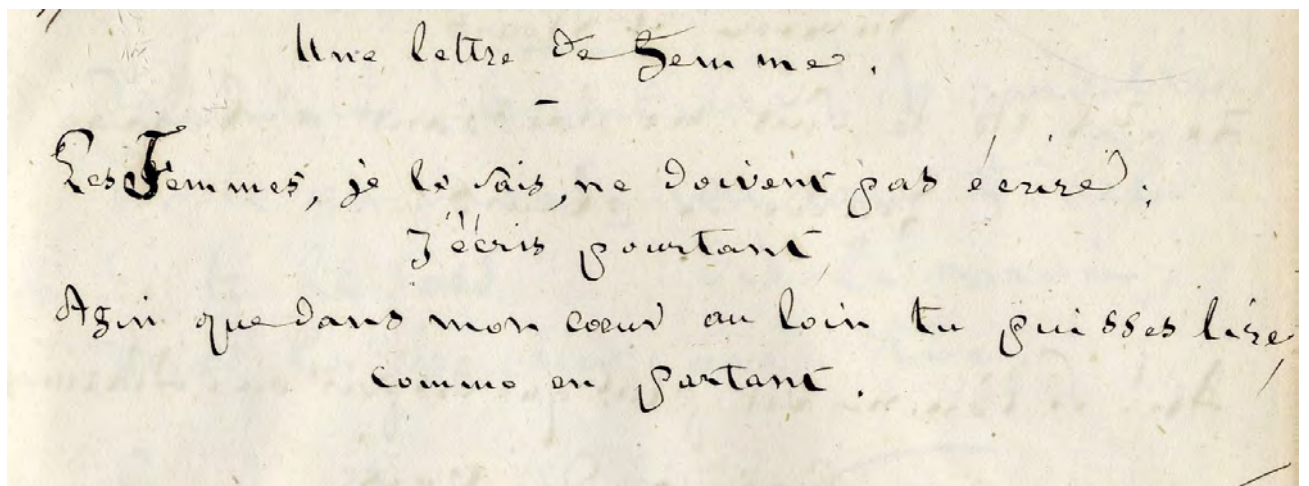 Une lettre de Femme.
Les Femmes, je le sais, ne doivent pas écrire ;
J'écris pourtant,
Afin que dans mon cœur au loin tu puisses lire,
comme en partant.